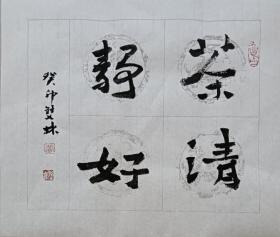 茶清
静好
癸卯